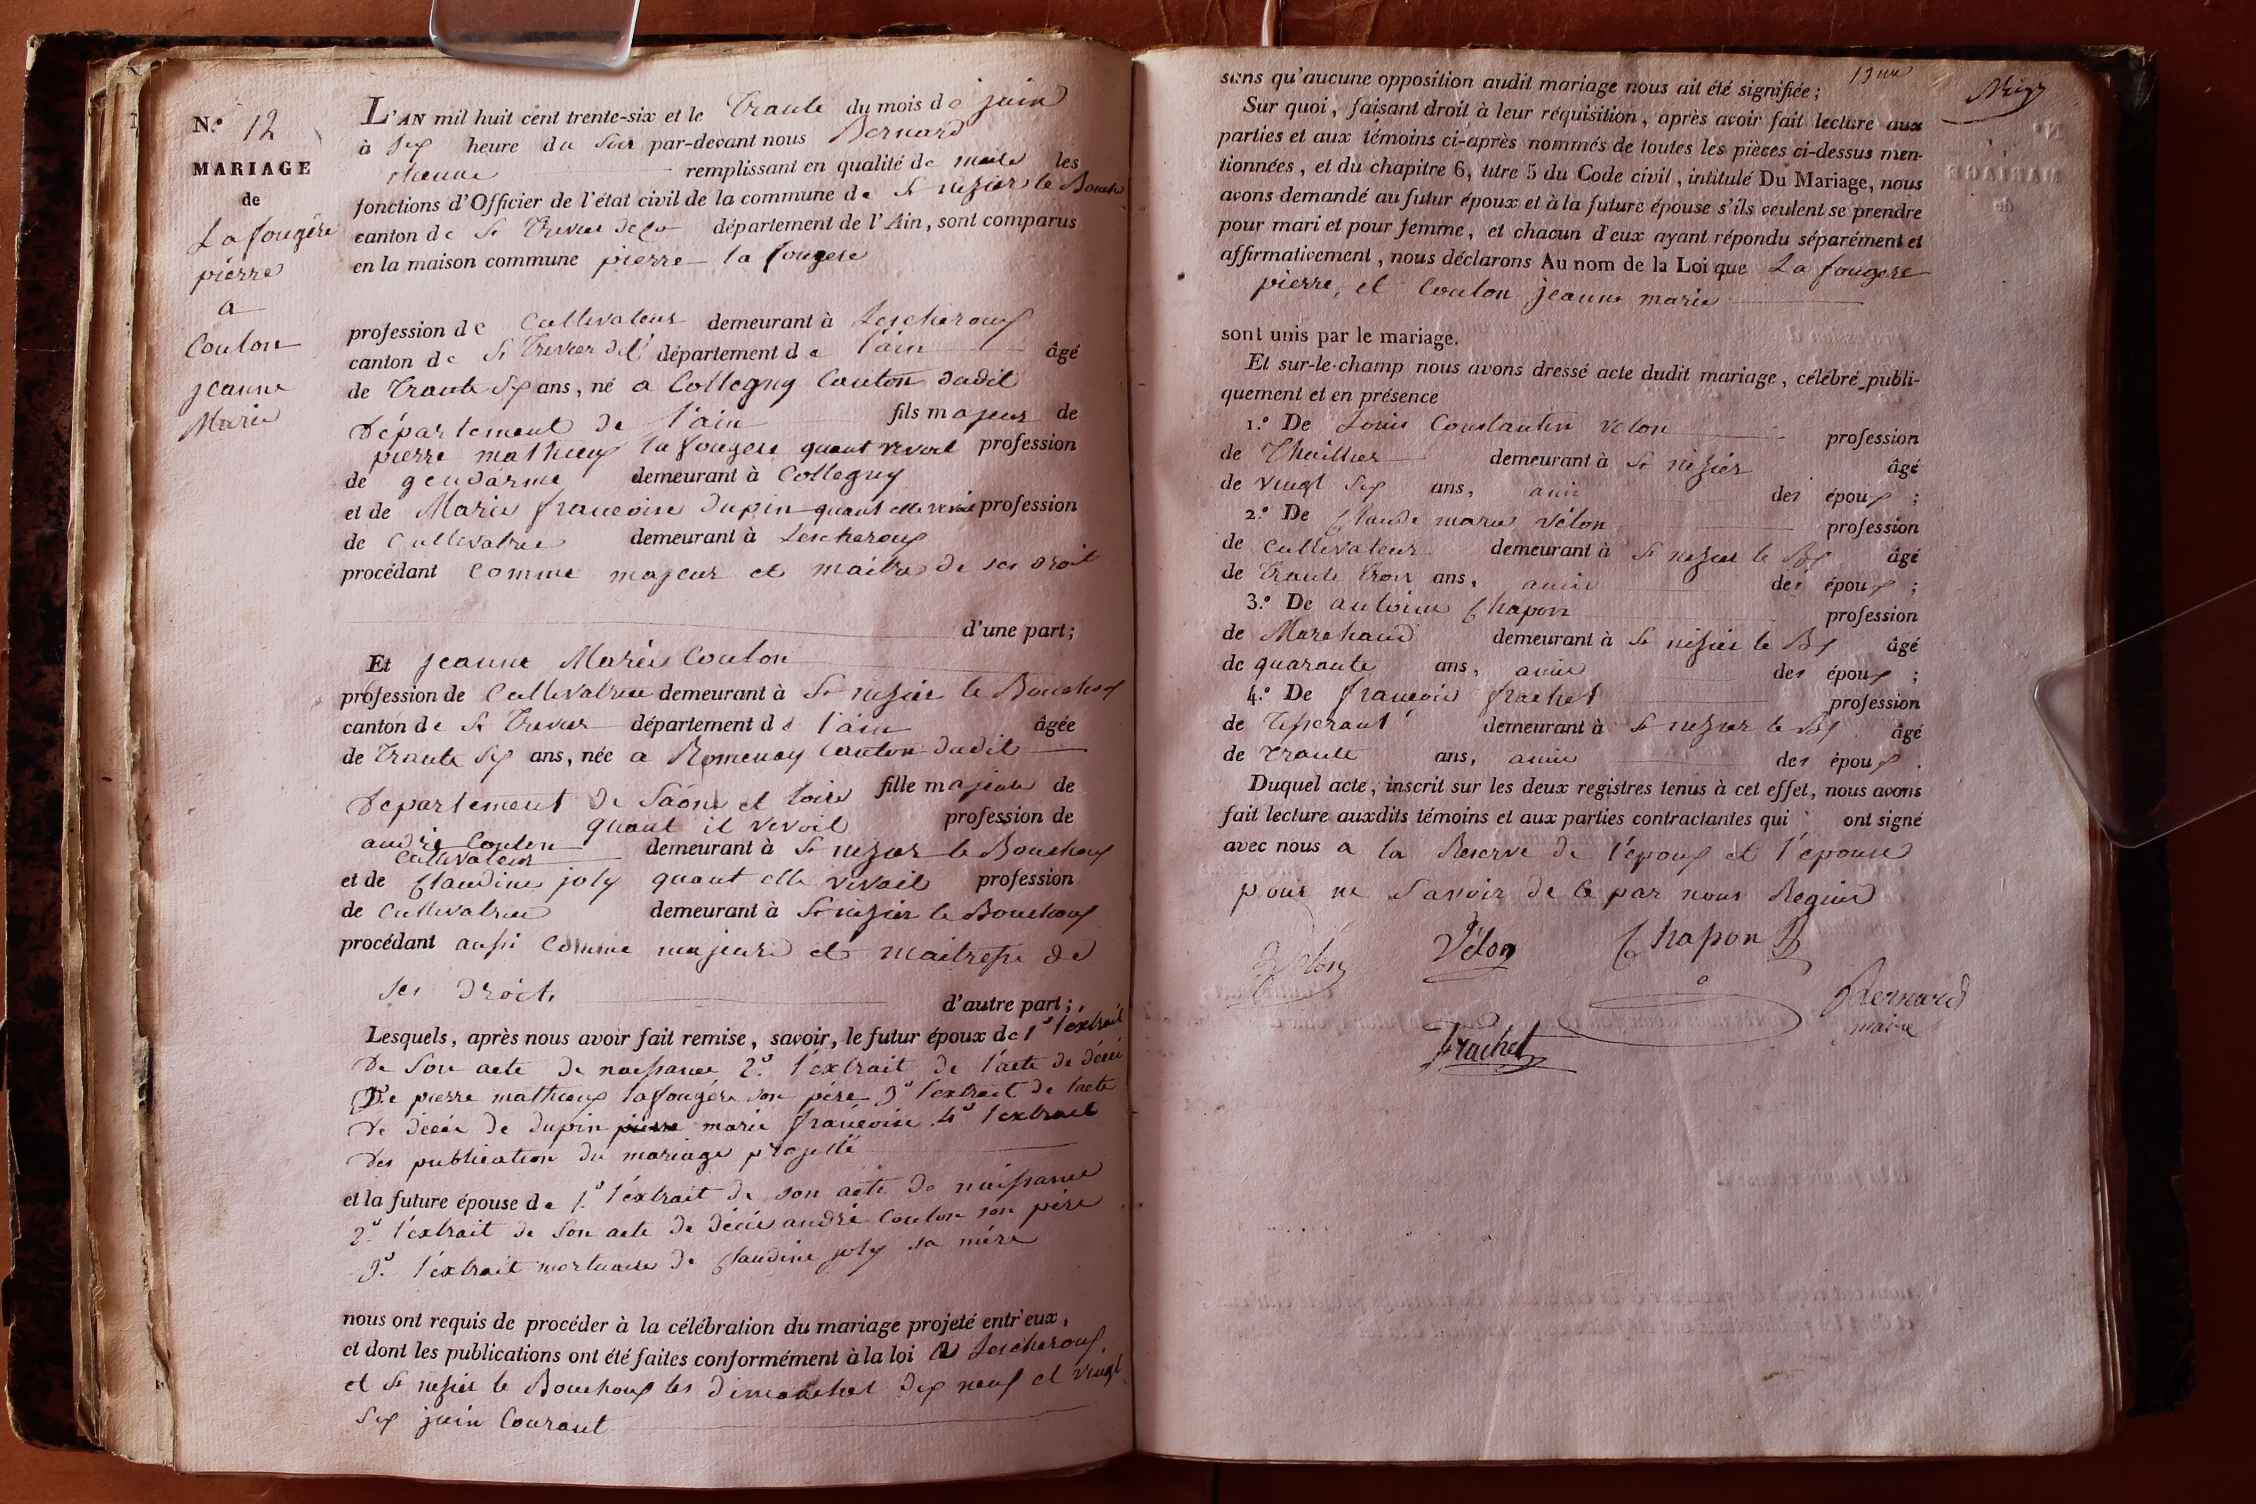 N.º 12
MARIAGE
de
La fougére
pierre
a
Coulon
jeanne
Marie
L'AN mil huit cent trente-six et le trante du mois de juin
à six heure du soir par-devant nous Bernard
remplissant en qualité de maire les
fonctions d'Officier de l'état civil de la commune de St nizier le Bouch
canton de St trivier de Co département de l'Ain, sont comparus
en la maison commune pierre la fougere
profession de Cultivateur demeurant à Lescheroux
canton de St trivier de C département de l'ain âgé
de trante six ans, né a Collogny Canton dudit
département de l'ain fils majeur de
pierre mathieux la fougere quant vivoit profession
de gendarme demeurant à Collogny
et de Marie francoise dupin quant elle vivoi profession
de Cultivatrice demeurant à Lescheroux
procédant comme majeur et maitre de ses droit
d'une part;
Et jeanne Marie Coulon
profession de Cultivatrice demeurant à St nizier le Bouchoux
canton de St trivier département de l'ain âgée
de trante six ans, née a Romenay Canton dudit
département de Saône et loire fille majeure de
andré Coulon quant il vivoit profession de
Cultivateur demeurant à St nizier le Bouchoux
et de Claudine joly quant elle vivait profession
de Cultivatrice demeurant à St nizier le Bouchoux
procédant aussi comme majeure et maitresse de
ses droits d'autre part;
Lesquels, après nous avoir fait remise, savoir, le futur époux de 1º l'éxtrait
de son acte de naissance 2º l'éxtrait de l'acte de décé
De pierre mathieux lafougére son pére 3º l'extrait de lacte
de décée de dupin pierre marie francoise 4º l'extrait
des publication du mariage projetté
et la future épouse de 1º l'éxtrait de son acte de naissance
2º l'éxtrait de son acte de décée andré Coulon son pére
3º l'éxtrait mortuaire de Claudine joly sa mére
nous ont requis de procéder à la célébration du mariage projeté entr'eux,
et dont les publications ont été faites conformément à la loi a Lescheroux
et St nizier le Bouchoux les dimanches dix neuf et vingt
six juin Courant
sans qu'aucune opposition audit mariage nous ait été signifiée;
Sur quoi, faisant droit à leur réquisition, après avoir fait lecture aux
parties et aux témoins ci-après nommés de toutes les pièces ci-dessus men-
tionnées, et du chapitre 6, titre 5 du Code civil, intitulé Du Mariage, nous
avons demandé au futur époux et à la future épouse s'ils veulent se prendre
pour mari et pour femme, et chacun d'eux ayant répondu séparément et
affirmativement, nous déclarons Au nom de la Loi que La fougere
pierre, et Coulon jeanne marie
sont unis par le mariage.
Et sur-le-champ nous avons dressé acte dudit mariage, célébré publi-
quement et en présence
1.º De Louis Constantin Velon profession
de Thuillier demeurant à St nizier âgé
de vingt six ans, amie des époux;
2.º De Claude marie Vélon profession
de cultivateur demeurant à St nizier le Bx âgé
de trante trois ans, amie des époux;
3.º De antoine Chapon profession
de Marchand demeurant à St nizier le Bx âgé
de quarante ans, amie des époux;
4.º De francois frachet profession
de tisserant demeurant à St nizier le Bx âgé
de trante ans, amie des époux.
Duquel acte, inscrit sur les deux registres tenus à cet effet, nous avons
fait lecture auxdits témoins et aux parties contractantes qui ont signé
avec nous a la Reserve de l'époux et l'epouse
pour ne savoir de ce par nous Requis
Velon
Vélon
Chapon
Bernard
maire
Frachet